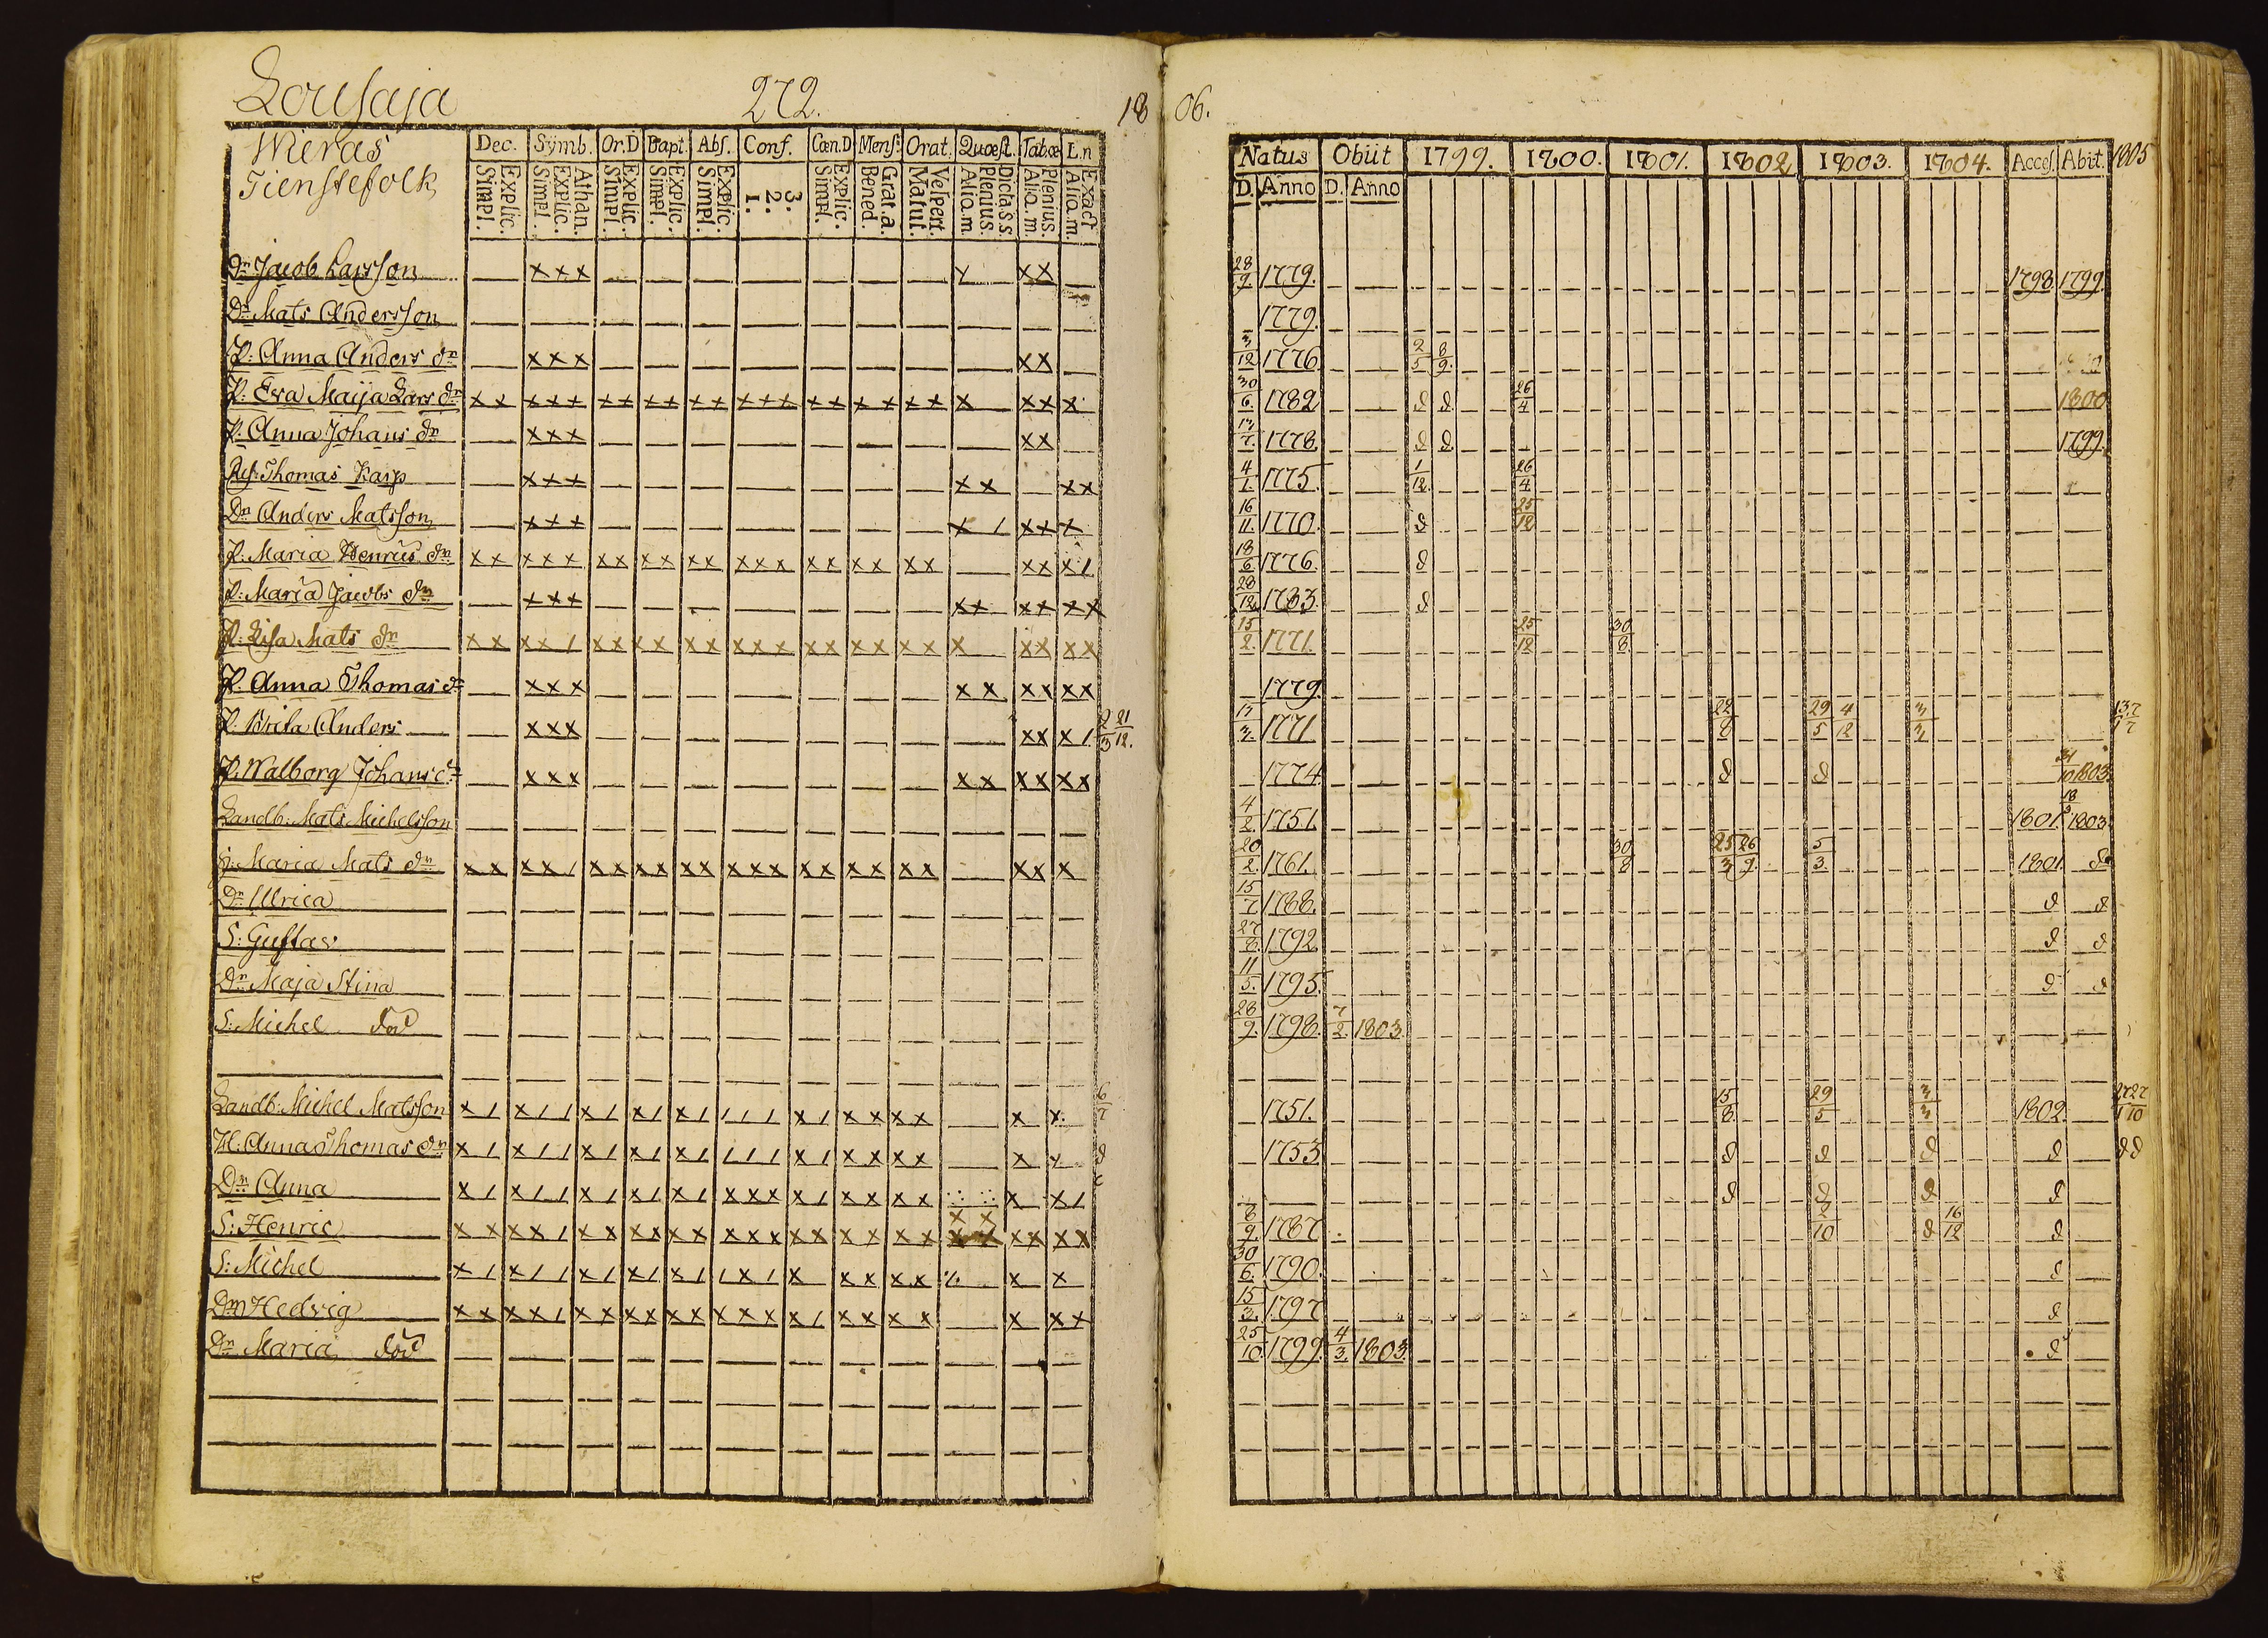 Lousaja 272. 18 06.
Wieras
Tienstefolk
Dec. Symb. Or.D Bapt. Abs. Conf. Cœn.D Mens. Orat. Quæst. Tab.œ L.n
Explic. Simpl. Athan. Explic. Simpl. Explic. Simpl. Explic. Simpl. Explic. Simpl. 3. 2. 1. Explic. Simpl. Grat. a. Bened. Vespert. Matut. Dicta s.s. Plenius. Aliq. m. Plenius. Aliq. m. Exact Aliq. m.
Natus Obiit 1799. 1800. 1801. 1802 1803. 1804. Acces. Abit. 1805
D. Anno D. Anno
Dn Jacob Larsson x x x x x x 28/9 1779. 1798 1799.
Dn Mats Andersson 1779.
P: Anna Anders dr x x x x x 3/12 1776 2/5 8/9.
P: Eva Maija Lars dr x x x x x x x x x x x x x x x x x x x x x x x x 30/6. 1782 d d 26/4 1800
P. Anna Johans dr x x x x x 17/7. 1778. d d 1799.
Thomas Karp x x x x x x x 4/1 1775. 1/12. 26/4
Dn Anders Matsson x x x x / x x x 16/11. 1770. d 25/12
P: Maria Henrics dr x x x x x x x x x x x x x x x x x x x x x x x / 18/6 1776. d
P: Maria Jacobs dr x x x x x x x x x 28/12. 1783. d
P: Lisa Mats dr x x x x / x x x x x x x x x x x x x x x x x x x x 15/2. 1771. 25/12 30/8.
P. Anna Thomas dr x x x x x x x x x 1779.
P. Brita Anders x x x x x x / 2/3 21/12. 17/3. 1771 22/8 29/5 4/12 3/3
P. Walborg Johans dr x x x x x x x x x 1774 d d 1803.
Landb: Mats Michelsson 4/2. 1751. 1801. 1803.
H: Maria Mats dr x x x x / x x x x x x x x x x x x x x x x x x 20/2. 1761. 30/8 25/3 26/9. 5/3. 1801. do
Dr Ulrica 15/7 1788. d d
S: Gustav 27/8. 1792. d d
Dr Maja Stina 11/5. 1795. d d
S: Michel död 28/9. 1798. 7/2. 1803.
Landb: Michel Matsson x / x / / x / x / x / / / / x / x x x x x x 6/7 1751. 15/8 29/5 3/3 1802. 27/1 27/10
H: Anna Thomas dr x / x / / x / x / x / / / / x / x x x x x x d 1753 d d d d d d
Dr Anna x / x / / x / x / x / x x x x / x x x x x x / d d d d
S: Henric x x x x / x x x x x x x x x x x x x x x x x x x x x 8/9. 1787. 2/10 d 16/12 d
S: Michel x / x / / x / x / x / / x / x x x x x x x 30/6. 1790. d
Dr Hedvig x x x x / x x x x x x x x x x / x x x x x x x 15/3. 1797 d
Dr Maria död 25/10. 1799. 4/3. 1803. d